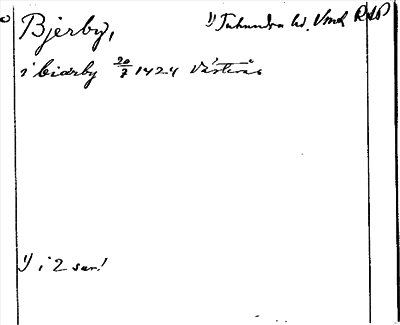 Bjerby, 1) Tuhundra hd. Vml RAP
i biærby 20/7 1424 Västerås
1) i 2 sur!